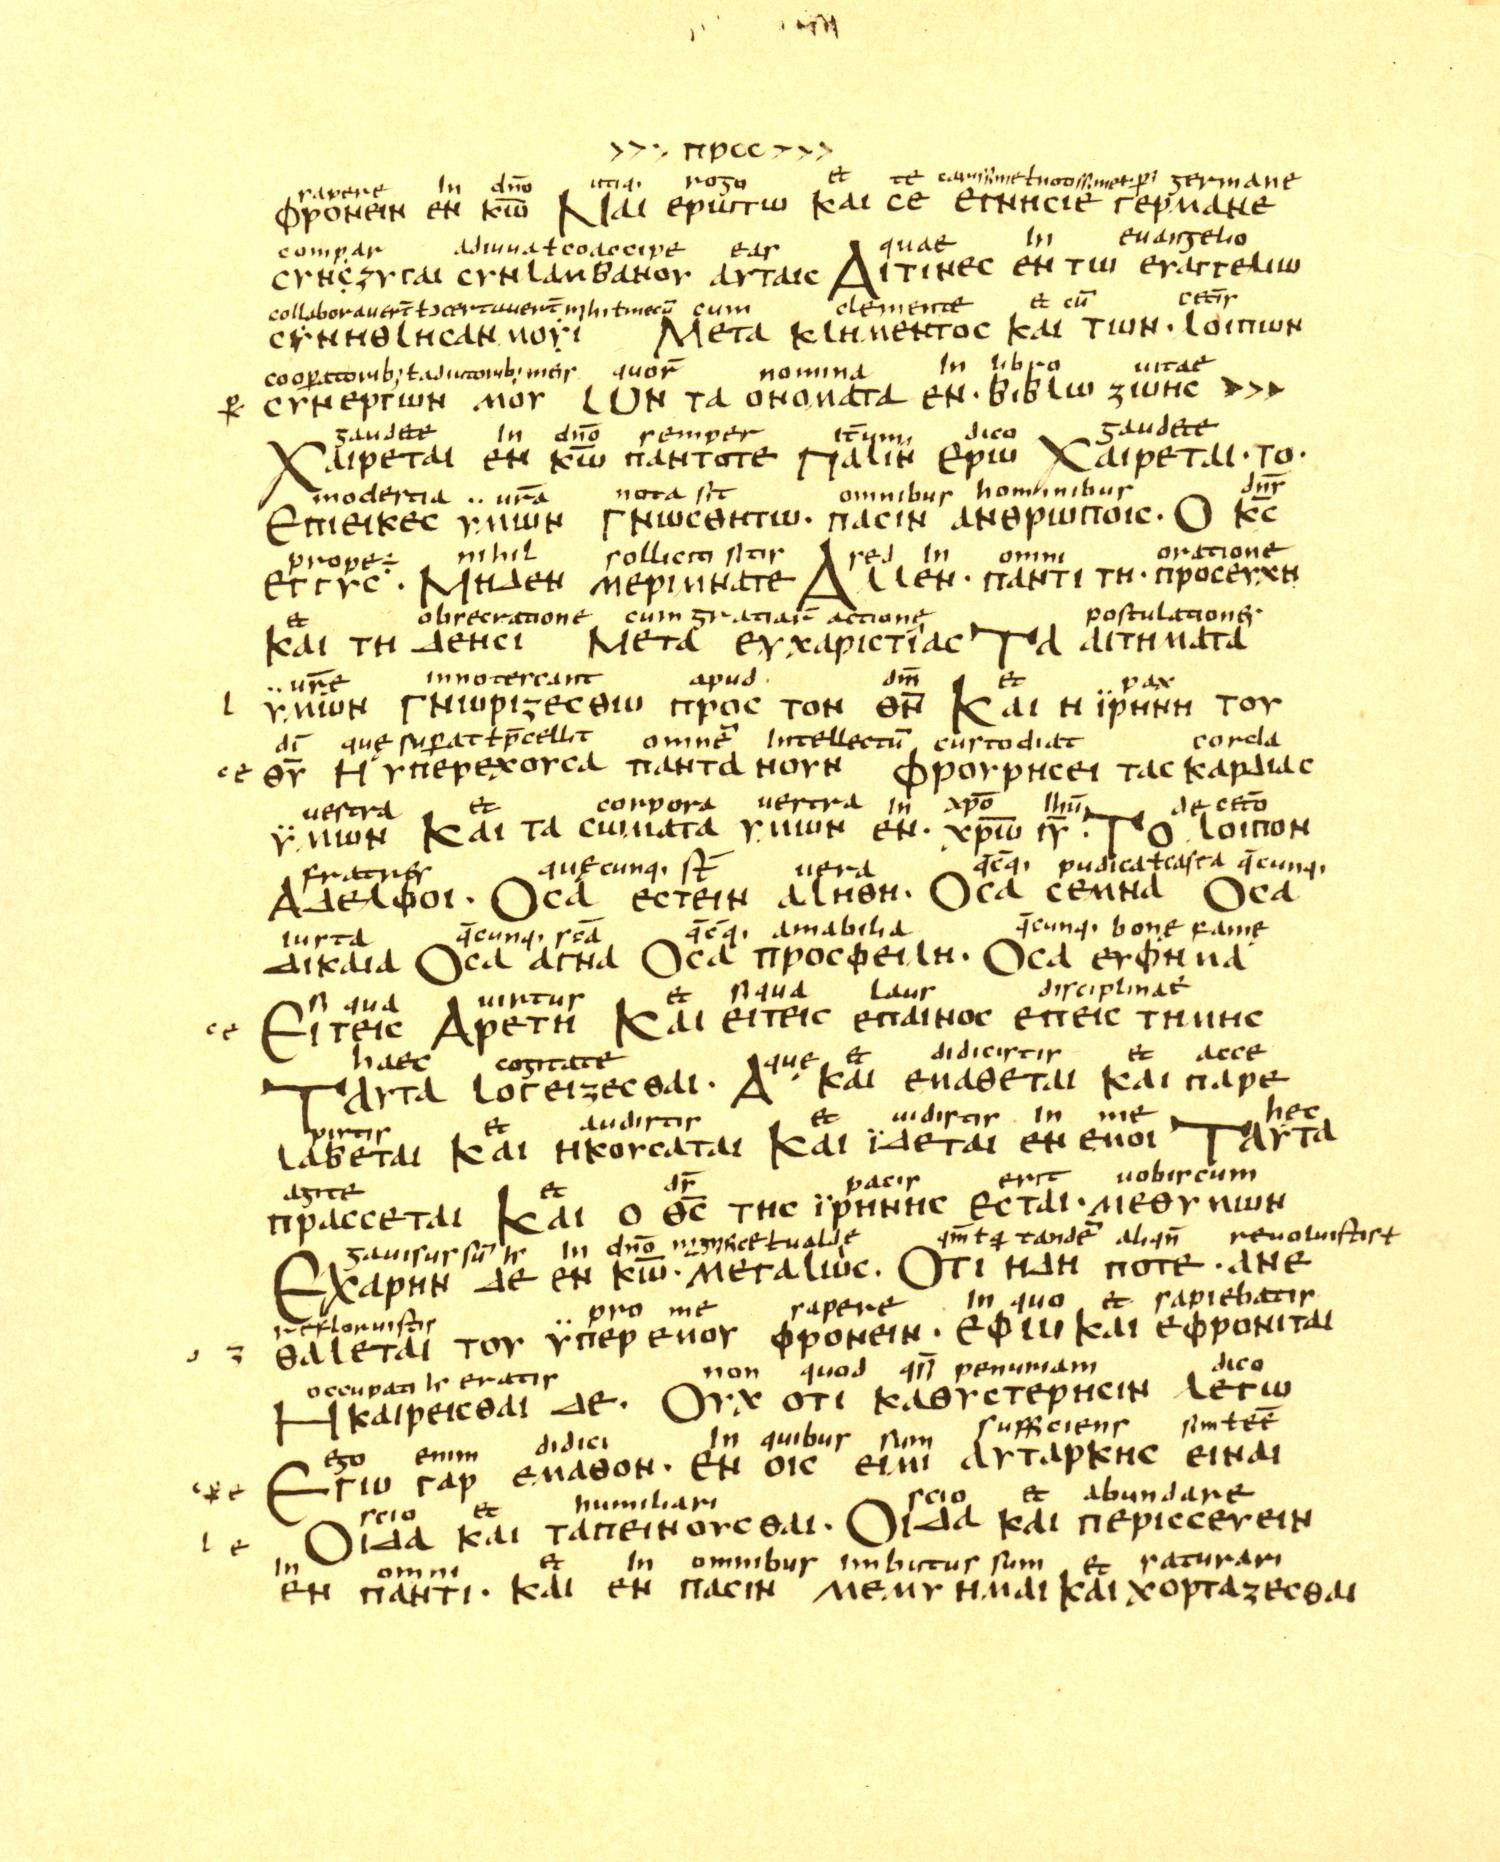 >>> πρсс >>>
sapere In dn̄o utiq; rogo et te carissime ł notissime germane
φρονειν εν κ̅ω̅ Ναι εριπτω και cε ετηηcιε γερμανε
compar adiuua ł coaccipe eas quae In euangelio
cυηζυγαι cυηλαμβανου αυταιc Αιτινεc εν τω ευαγγελιω
collaborauer̄t ł c̄certauer̄t mihi ł mecū cum clemente et cū cet̄is
cυνηθληcαν μου Μετα κλημεντοc και των · λοιπων
cooperatorib; ł adiutorib; meis quor̄ nomina In libro uitae
cυνεργων μου ωΝ τα ονοματα εν · βιβλω ζωηc >>>
gaudete In dn̄o semper it̄um dico gaudete
Χαιρεται εν κ̅ω̅ παντοτε Παλιν Ερω Χαιρεται · το ·
modestia ur̄a nota sit omnibus hominibus dn̄s
Επιεικεc υμων Γνωcθητω · παcιν ανθρωποιc · Ο κ̅c̅
prope ÷ nihil solliciti sitis sed In omni oratione
εγγυc · Μηδεν μεριμνατε Αλλεν · παντι τη · προcευχη
et obsecratione cum gratiar̄ actione postulationes
και τη δεηcι Μετα ευχαριcτιαc Τα αιτηματα
ur̄e innotescant apud dm̄ et pax
υμων Γνωριζεcθω προc τον θ̅ν̅ Και η ϊρηνη του
dī que superat ł p̄cellit omnē Intellectū custodiat corda
θ̅υ̅ Η υπερεχουcα παντα νουν Φρουρηcει ταc καρδιαc
uestra et corpora uestra in xp̄o ihū de cet̄o
ϋμων Και τα cωματα υμων εν · χ̅ρ̅ω̅ ι̅υ̅ · Το λοιπον
fratres quecunq; st̄ uera q̄cq; pudica ł casta q̄cunq;
Αδελφοι · Οcα εcτειν αληθη · Οcα cεμνα Οcα
iusta q̄cunq; sc̄a q̄cq; amabilia q̄cunq; bone fame
Δικαια Οcα αγνα Οcα προcφειλη · Οcα ευφημα
si qua uirtus et siqua laus disciplinae
Ει τειc Αρετη Και ειτειc επαινοc επειcτημηc
haec cogitate que et didicistis et acce
Ταυτα λογειζεcθαι · Α και εμαθεται και παρε
pistis et audistis et uidistis in me hec
λαβεται και ηκουcαται Και ϊδεται εν εμοι Ταυτα
agite et d̄s pacis erit uobiscum
πραccεται Και ο θ̅c̅ τηc ϊρηνηc εcται · μεθυμων
gauisus sū In dn̄o ualde qm̄ tandē aliqn̄ reuoluistis ł
Εχαρην δε εν κ̅ω̅ · μεγαλωc · Οτι ηδη ποτε · ανε
refloruistis pro me sapere In quo et sapiebatis
θαλεται του ϋπερ εμου φρονειν · εφω και εφρονιται
occupati eratis non quod qsi penuriam dico
Ηκαιρειcθαι δε · Ουχ οτι καθυcτερηcιν λεγω
ego enim didici In quibus sum sufficiens sim ł eē
Εγω γαρ εμαθον · εν οιc ειμι αυταρκηc ειναι
scio et humiliari scio et abundare
Οιδα και ταπεινουcθαι · Οιδα και περιccευειν
in omni et in omnibus imbutus sum et saturari
εν παντι · και εν παcιν μεμυημαι και χορταζεcθαι